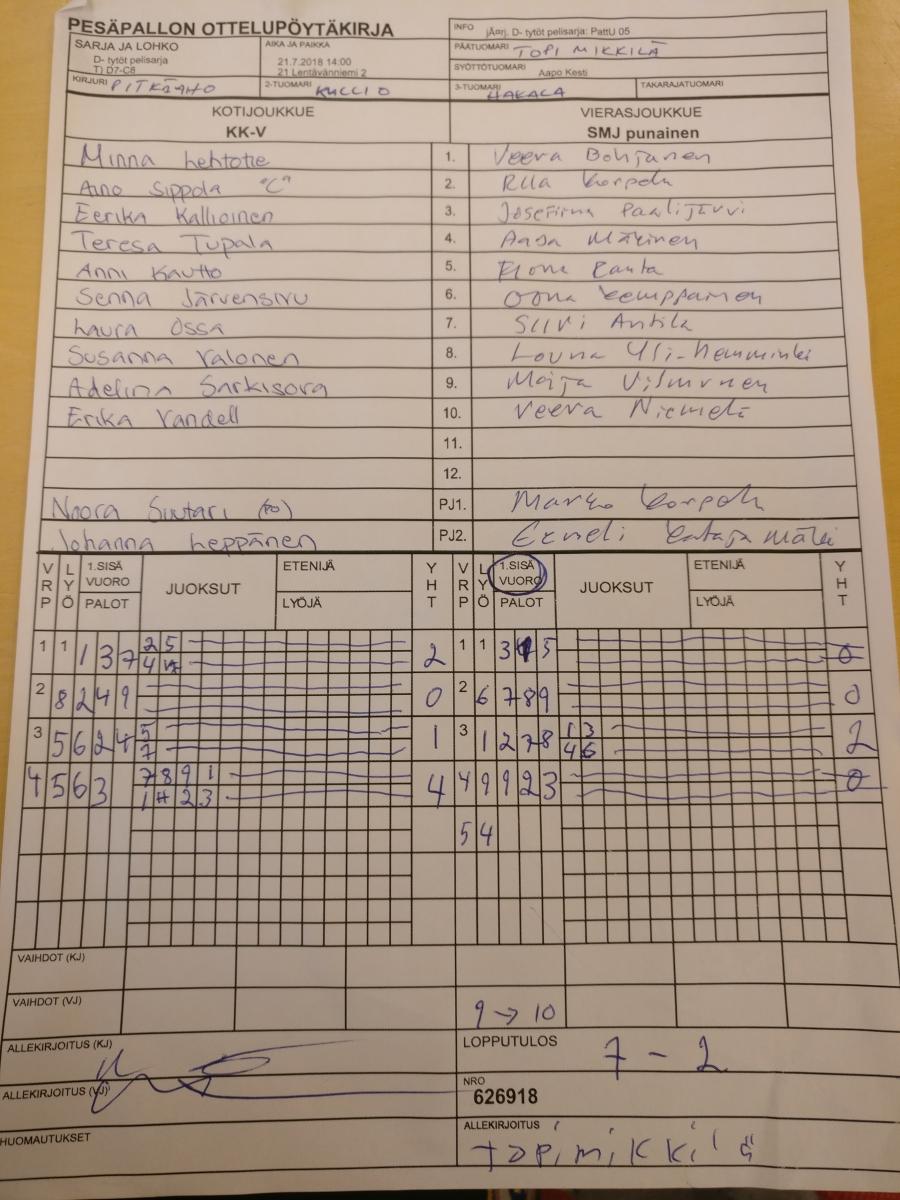 PESÄPALLON OTTELUPÖYTÄKIRJA
INFO jÃ¤rj. D- tytöt pelisarja: PattU 05
SARJA JA LOHKO
D- tytöt pelisarja
T) D7-C8
AIKA JA PAIKKA
21.7.2018 14:00
21 Lentävänniemi 2
PÄÄTUOMARI TOPI MIKKILÄ
SYÖTTÖTUOMARI Aapo Kesti
KIRJURI PITKÄAHO 2-TUOMARI KULLIO 3-TUOMARI HAKALA TAKARAJATUOMARI
KOTIJOUKKUE VIERASJOUKKUE
KK-V SMJ punainen
Minna Lehtotie 1. Veera
Aino Sippola "C" 2.
Eerika Kallioinen 3. Josefiina Paalijärvi
Teresa Tupala 4. Aasa Mäkinen
Anni Kautto 5. Fiona Ranta
Senna Järvensivu 6. Oona Kemppainen
Laura Ossa 7. Siiri Antila
Susanna Valonen 8. Louna Yli-Hemminki
Adelina Sarkisova 9. Maija Vilmunen
Erika Vandell 10. Veera Niemelä
11.
12.
Noora PJ1. Marko Korpela
Johanna Leppänen PJ2. Eemeli Katajamäki
V R P L Y Ö 1.SISÄ VUORO PALOT JUOKSUT ETENIJÄ LYÖJÄ Y H T V R P L Y Ö 1.SISÄ VUORO PALOT JUOKSUT ETENIJÄ LYÖJÄ Y H T
1 1 1 3 7 2 5 2 1 1 3 4 5 0
2 8 2 4 9 0 2 6 7 8 9 0
3 5 6 2 4 5 7 1 3 1 2 7 8 1 3 4 6 2
4 5 6 3 7 8 9 1 4 4 9 9 2 3 0
5 4
VAIHDOT (KJ)
VAIHDOT (VJ) 9 → 10
ALLEKIRJOITUS (KJ) LOPPUTULOS 7 - 2
ALLEKIRJOITUS (VJ) NRO
626918
HUOMAUTUKSET ALLEKIRJOITUS
topi mikkilä